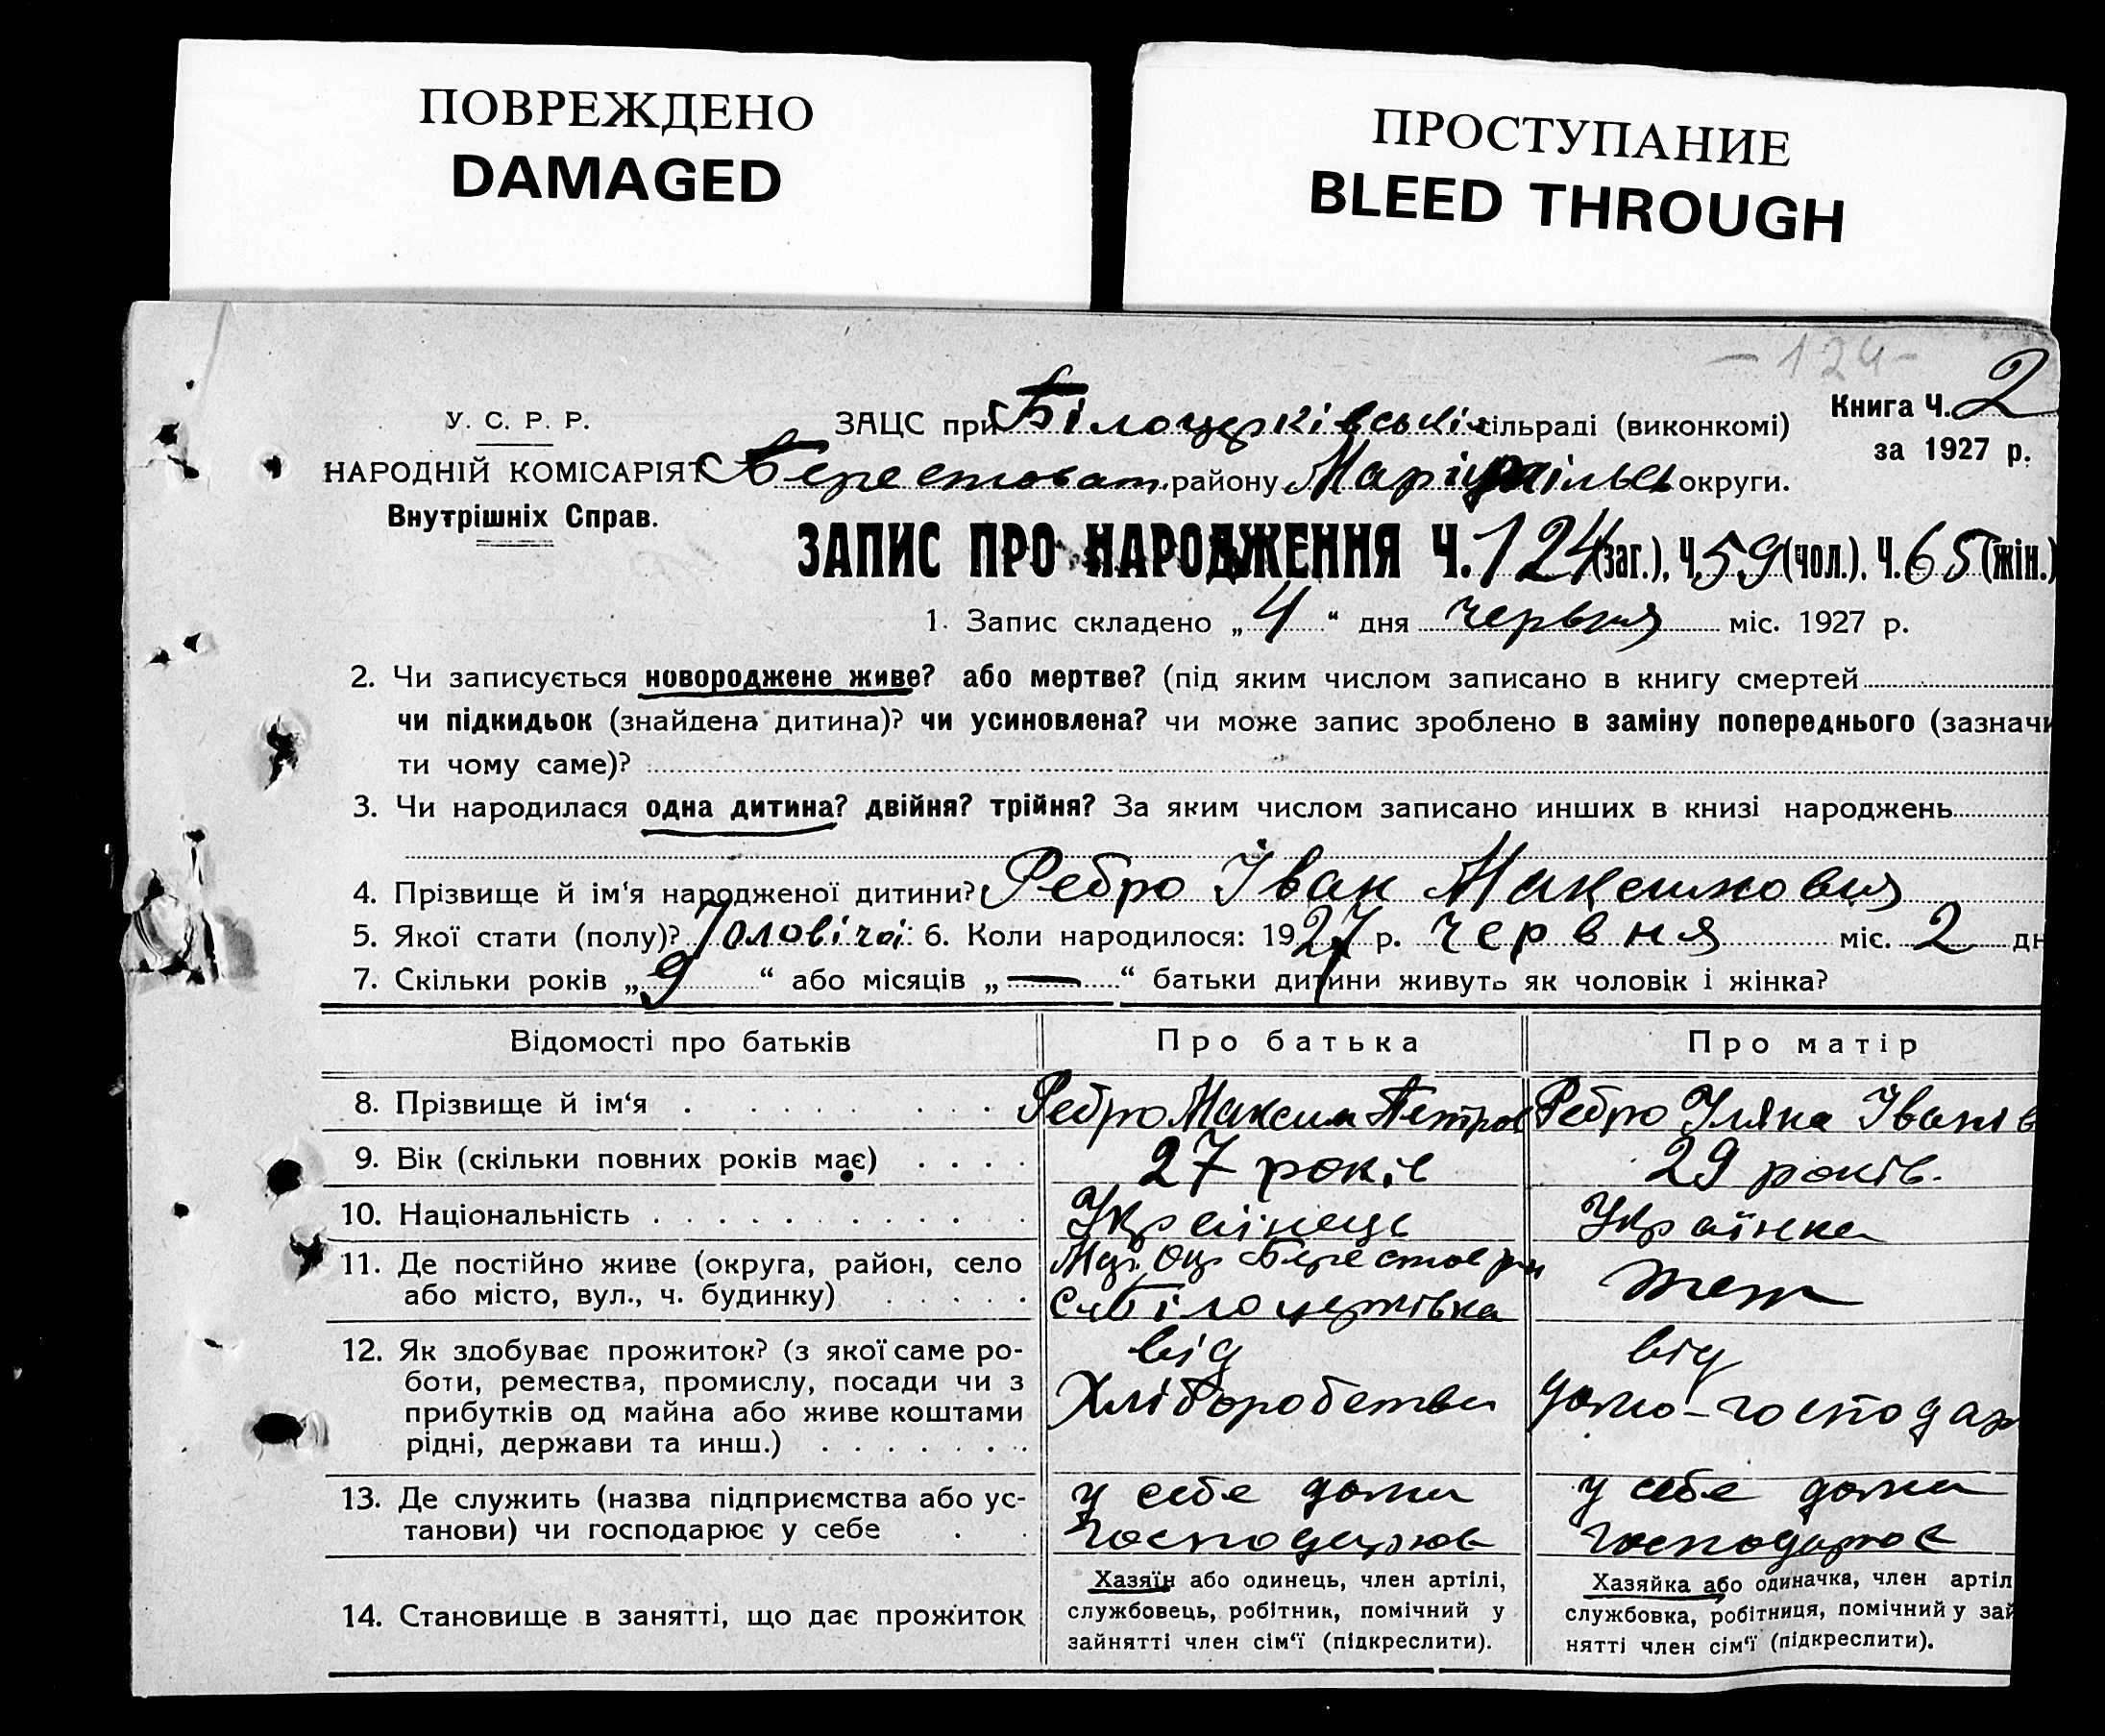 ПОВРЕЖДЕНО
DAMAGED
ПРОСТУПАНИЕ
BLEED THROUGH
-124-
Книга Ч. 2
за 1927 р.
У. С. Р. Р.
НАРОДНІЙ КОМІСАРІЯТ
Внутрішніх Справ.
ЗАЦС при Білоцерківській сільраді (виконкомі)
Берестоват. району Маріупільсь округи.
ЗАПИС ПРО НАРОДЖЕННЯ Ч. 124 (заг.), Ч. 59 (чол.), Ч. 65 (жін.)
1. Запис складено „ 4 “ дня червня міс. 1927 р.
2. Чи записується новороджене живе? або мертве? (під яким числом записано в книгу смертей
чи підкидьок (знайдена дитина)? чи усиновлена? чи може запис зроблено в заміну попереднього (зазначи
ти чому саме)?
3. Чи народилася одна дитина? двійня? трійня? За яким числом записано инших в книзі народжень
4. Прізвище й ім‘я народженої дитини? Ребро Іван Максимович
5. Якої стати (полу)? Чоловічої 6. Коли народилося: 1927 р. червня міс. 2 дн
7. Скільки років „ 9 “ або місяців „ — “ батьки дитини живуть як чоловік і жінка?
Відомості про батьків Про батька Про матір
8. Прізвище й ім‘я Ребро Максим Петров Ребро Уляна Іванів
9. Вік (скільки повних років має) 27 років 29 років.
10. Національність Українець Українка
11. Де постійно живе (округа, район, село Мар. окр. Берестов рн теж
або місто, вул., ч. будинку) с. Білоцерківка
12. Як здобуває прожиток? (з якої саме ро- від від
боти, ремества, промислу, посади чи з Хліборобства домо-господар
прибутків од майна або живе коштами
рідні, держави та инш.)
13. Де служить (назва підприємства або ус- у себе дома у себе дома
танови) чи господарює у себе господарює господарює
14. Становище в занятті, що дає прожиток
Хазяїн або одинець, член артілі,
службовець, робітник, помічний у
зайнятті член сім‘ї (підкреслити).
Хазяйка або одиначка, член артіл
службовка, робітниця, помічний у зай
нятті член сім‘ї (підкреслити).